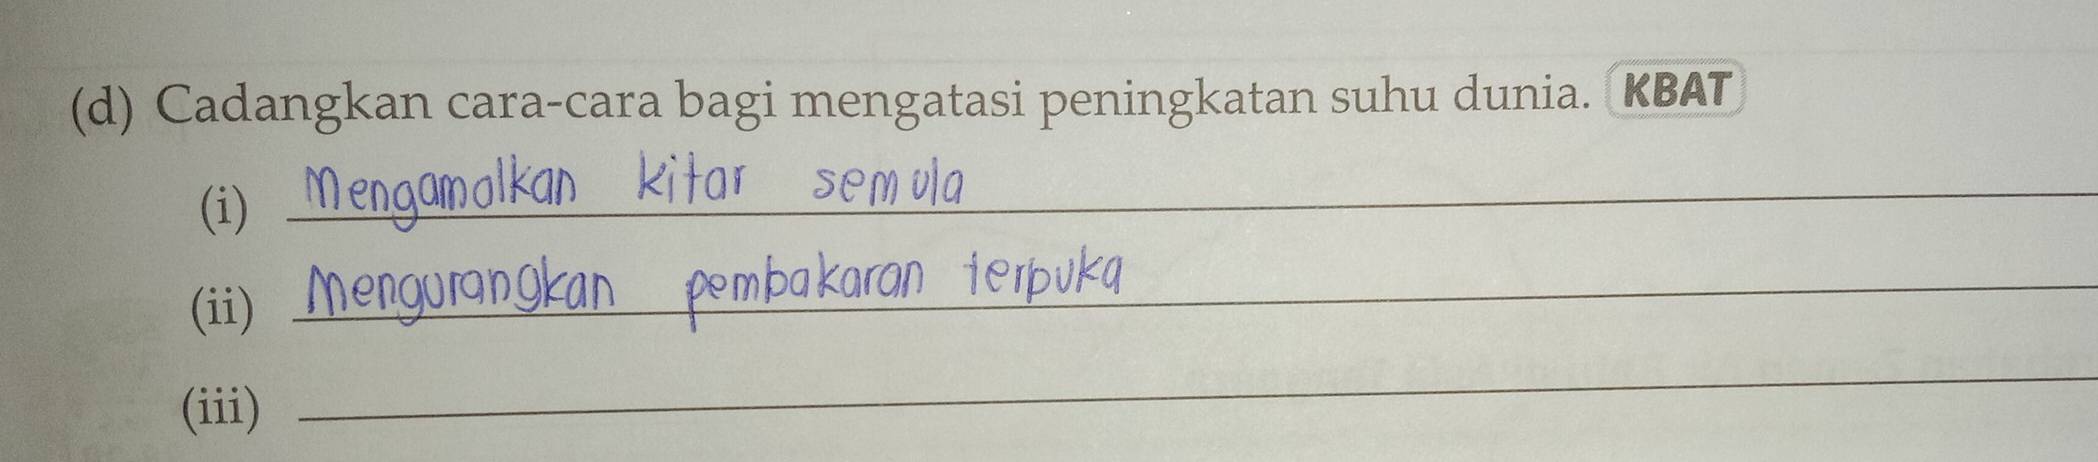 (d) Cadangkan cara-cara bagi mengatasi peningkatan suhu dunia. KBAT
(i) Mengamalkan kitar semula
(ii) Mengurangkan pembakaran terbuka
(iii)